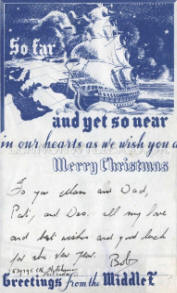 So far
and yet so near
in our hearts as we wish you a
Merry Christmas
To you Mam and Dad,
Pat, and Des. all my love
and best wishes and good luck
for the New Year.
Bob
Greetings from the Middle E